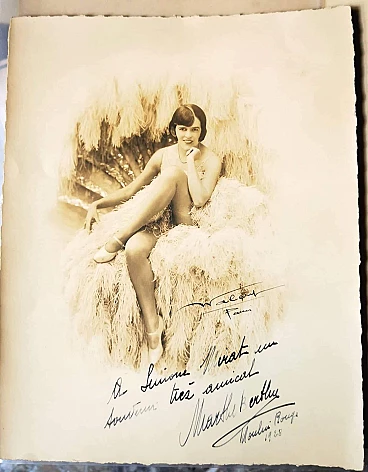 Walery
Paris
A Simone Mirat un
souvenir très amical
Marthe Berthy
Moulin Rouge
1928